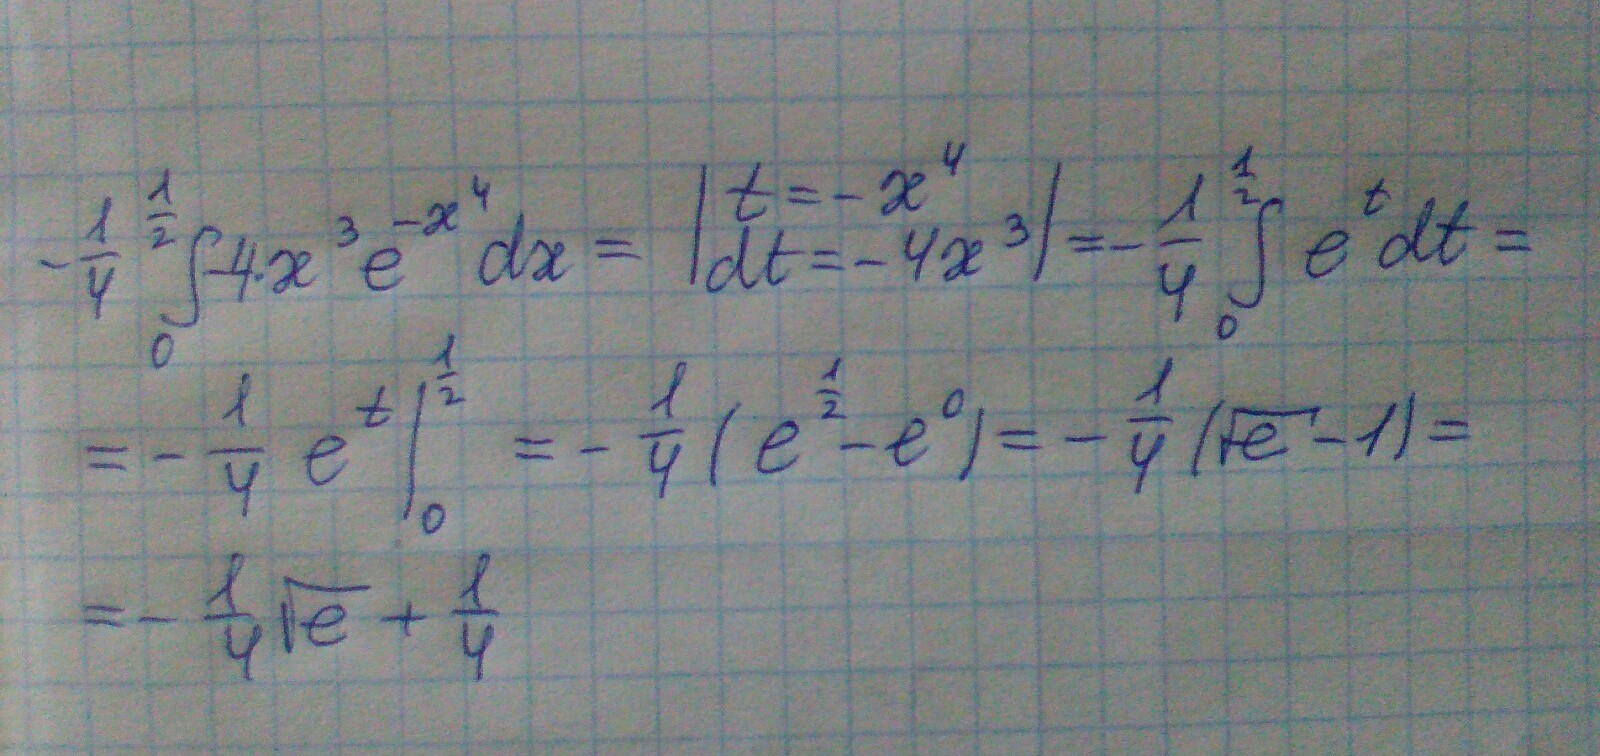 -1/4 ∫₀^(1/2) -4·x³e^(-x⁴) dx = | t = -x⁴ dt = -4x³ | = -1/4 ∫₀^(1/2) e^t dt =
= -1/4 e^t |₀^(1/2) = -1/4 ( e^(1/2) - e⁰ ) = -1/4 ( √e - 1 ) =
= -1/4 √e + 1/4